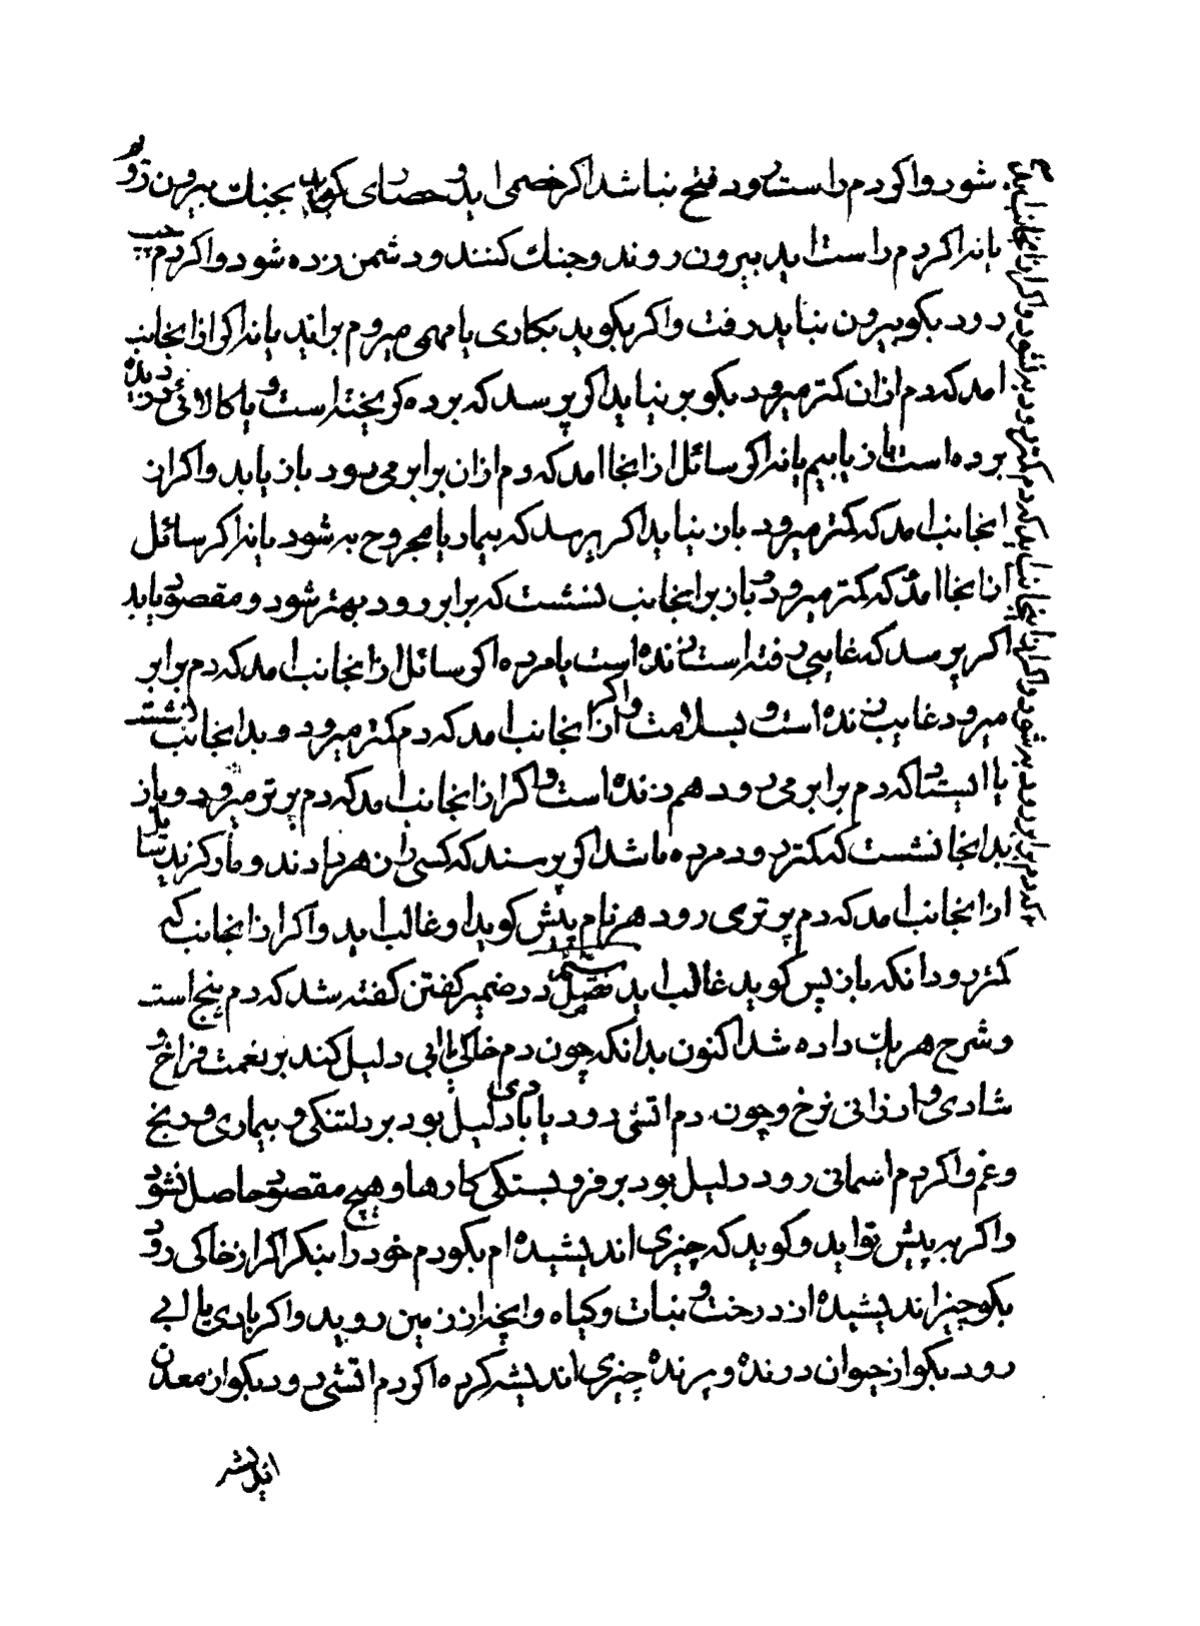 شود و اکر دم راست رود فتح نباشد اکر خصمی اید و حصاری کوید بجنك بیرون رویم
یا نه اکر دم راست اید بیرون روند و جنك کنند و دشمن زده شود و اکر دم چپ
رود بکو بیرون نباید رفت و اکر بکوید بکاری یا مهمی میروم براید یا نه اکر از انجانب
امد که دم ازان کمتر میرود بکو بر نیاید اکر پرسد که برده کریخته است و یا کالائی دزدیده
برده است باز یابیم یا نه اکر سائل از انجا امد که دم ازان برابر می رود باز یابد و اکر از
انجانب امد که کمتر میرود باز نیاید اکر پرسد که بیمار یا مجروح به شود یا نه اکر سائل
از انجا امد که کمتر میرود و باز برانجانب نشست که برابر رود بهتر شود و مقصود یابد
اکر پرسد که غایبی رفته است زنده است یا مرده اکر سائل از انجانب امد که دم برابر
میرود غایب زنده است و بسلامت و اکر از انجانب امد که دم کمتر میرود و بدانجانب نشست
یا ایستاد که دم برابر می رود هم زنده است و اکر از انجانب امد که دم پرتر میرود و باز
بدانجا نشست که کمتر رود مرده باشد اکر پرسند که کسی را زهر دادند و مار کزید
از انجانب امد که دم پرتری رود هر نام پیش کوید او غالب اید و اکر از انجانب که
کمتر رود انکه باز پس کوید غالب اید فصل در ضمیر کفتن کفته شد که دم پنج است
و شرح هریك داده شد اکنون بدانکه چون دم خاکی یا ابی دلیل کند بر نعمت فراخ و
شادی و ارزانی نرخ و چون دم اتشی رود یا بادی دلیل بود بر دلتنکی و بیماری و رنج
و غم و اکر دم اسمانی رود دلیل بود بر فرو بستکی کارها و هیچ مقصود حاصل نشود
و اکر به پیش تو اید و کوید که چیزی اندیشیده ام بکو دم خود را بنکر اکر از خاکی رود
بکو چیز اندیشیده از درخت و نبات و کیاه و انچه از زمین روید و اکر بادی یا ابی
رود بکو از حیوان درنده و پرنده چیزی اندیشه کرده اکر دم اتشی رود بکو از معدن
اندیشه